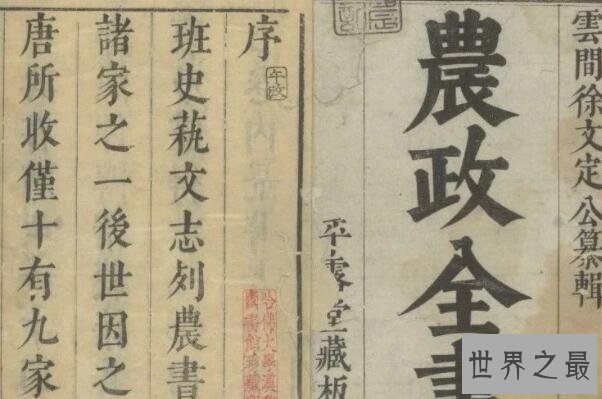 雲間徐文定公纂輯
農政全書
平露堂藏板
序
班史蓺文志列農書
諸家之一後世因之
唐所收僅十有九家
哈佛大學漢
圖書館珍藏
世界之最